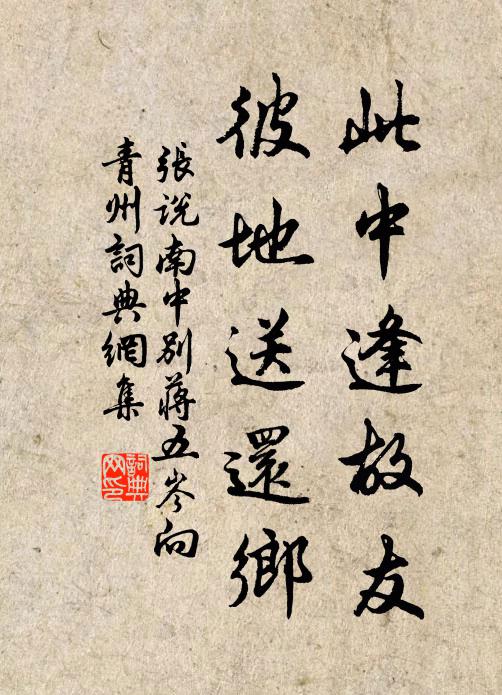 此中逢故友
彼地送還鄉
張說南中別蔣五岑向
青州詞典網集
詞典
网印